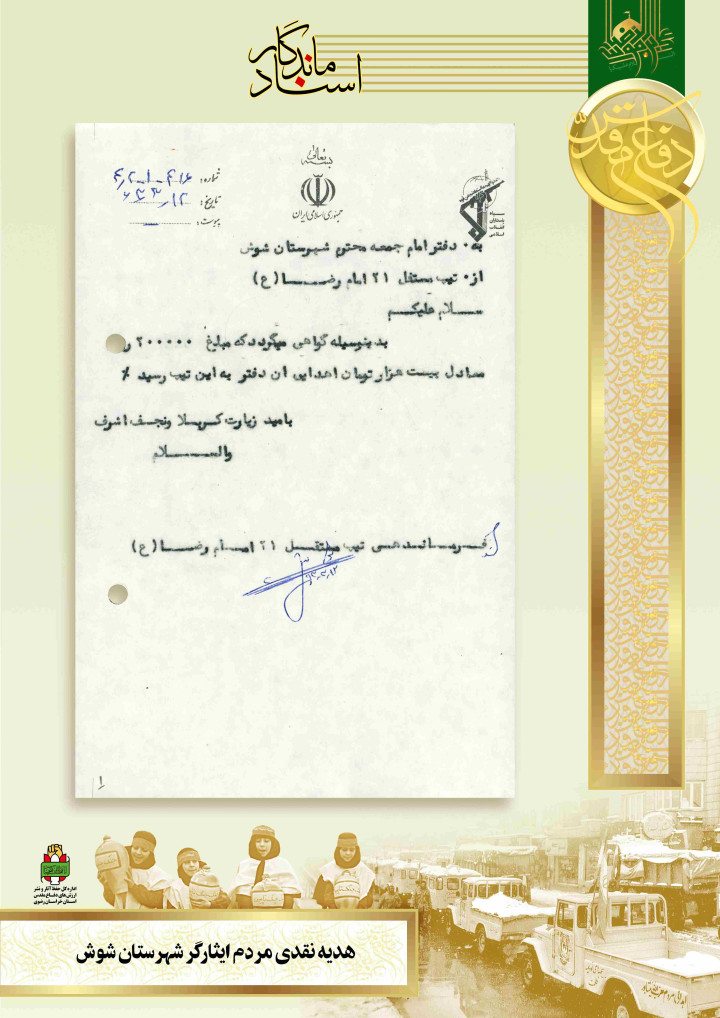 اسناد
ماندگار
دفاع مقدس
بسمه تعالی
جمهوری اسلامی ایران
سپاه
پاسداران
انقلاب
اسلامی
شماره:
تاریخ:
پیوست:
به: دفتر امام جمعه محترم شهرستان شوش
از: تیپ مستقل ۲۱ امام رضا (ع)
سلام علیکم
بدینوسیله گواهی میگردد که مبلغ ۲۰۰۰۰۰ ر
معادل بیست هزار تومان اهدایی آن دفتر به این تیپ رسید ٪
بامید زیارت کربلا ونجف اشرف
والسلام
فرماندهی تیپ مستقل ۲۱ امام رضا (ع)
۱
اداره کل حفظ آثار و نشر
ارزش‌های دفاع مقدس
استان خراسان رضوی
هدیه نقدی مردم ایثارگر شهرستان شوش